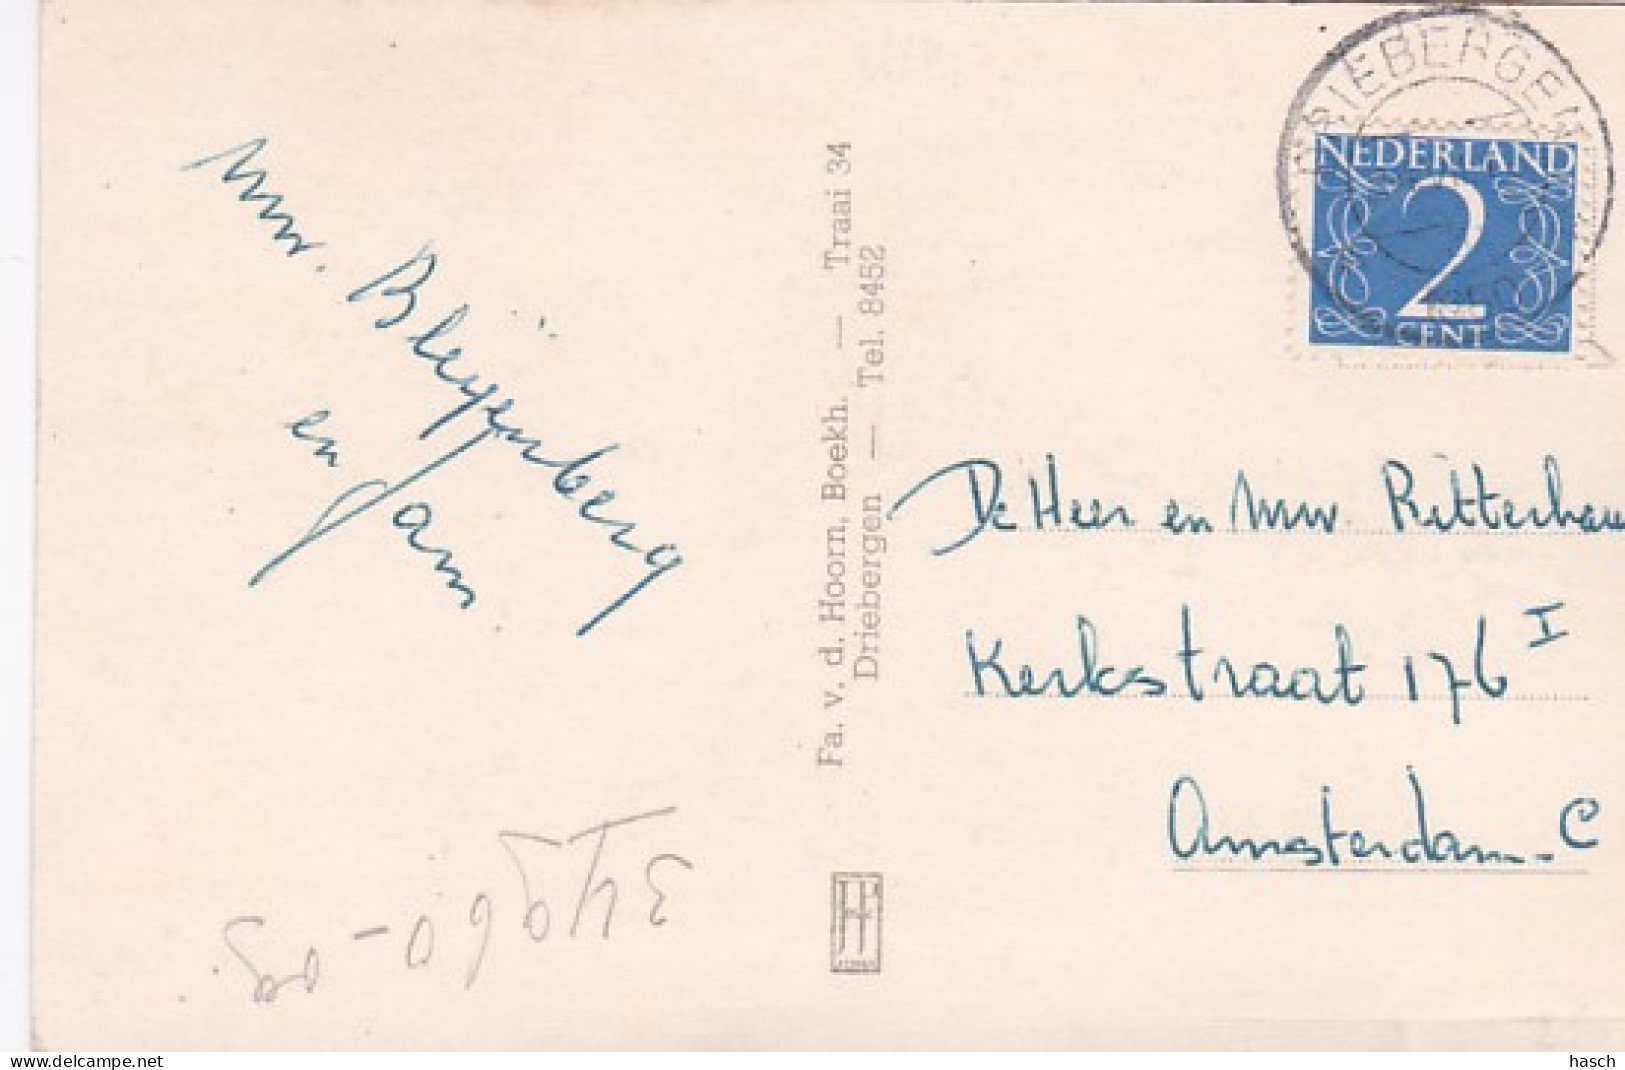 DRIEBERGEN
NEDERLAND
2
CENT
Mw. Bleijenberg
en fam.
Fa. v. d. Hoorn, Boekh. — Traai 34
Driebergen — Tel. 8452
De Heer en Mw. Ritterhau
Kerkstraat 176 I
Amsterdam-C
www.delcampe.net
hasch